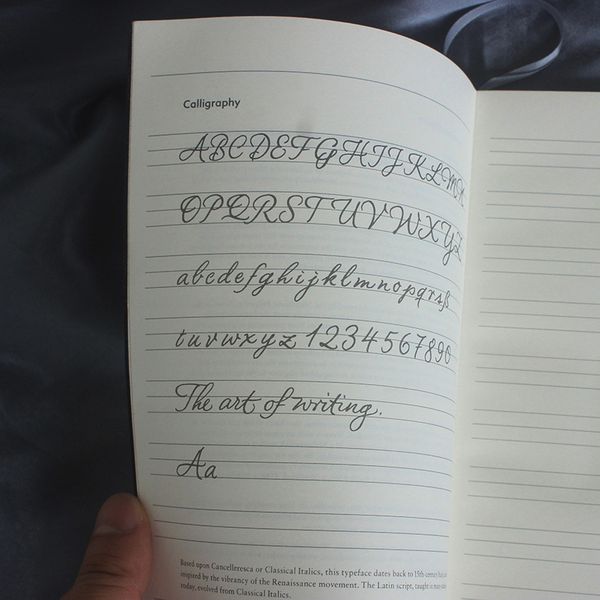 Calligraphy
ABCDEFGHIJKLMN
OPQRSTUVWXYZ
abcdefghijklmnopqrsß
tuvwxyz 1234567890
The art of writing.
Aa
Based upon Cancelleresca or Classical Italics, this typeface dates back to 15th century
inspired by the vibrancy of the Renaissance movement. The Latin script, taught in many
today, evolved from Classical Italics.